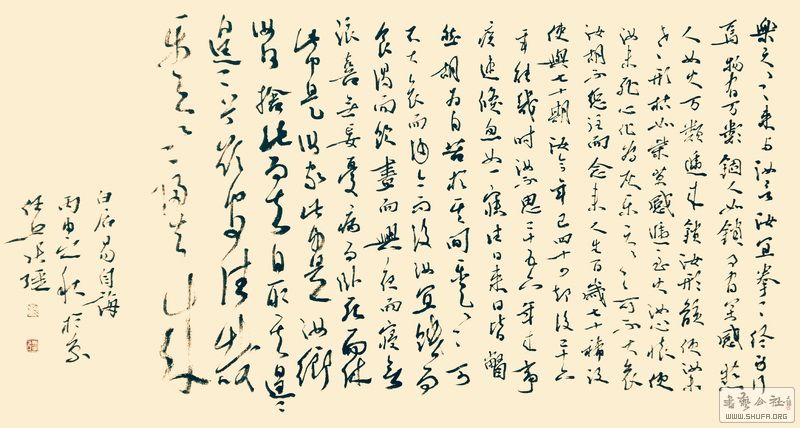 樂天〻〻来与汝言汝宜拳〻终身行
焉物有万類錮人如鎖事有万感爇
人如火万類遞来鎖汝形骸使汝未
老形枯如柴万感遞至火汝心懷使
汝未死心化为灰乐天〻〻可不大哀
汝胡不懲往而念来人生百歲七十稀設
使與七十期汝今年已四十四却後二十六
年能幾時汝不思二十五六年来事
疾速倏忽如一寐往日来日皆瞥
然胡为自苦於其间乐天〻〻可
不大哀而今而後汝宜饑而
食渴而飲晝而興夜而寢無
浪喜無妄憂病而卧死而休
此中是汝家此中是汝鄉
汝何捨此而去自取其遑〻
遑〻兮欲安往哉
乐天〻〻归去来
白居易自誨
丙申之秋於京
書藝公社
WWW.SHUFA.ORG